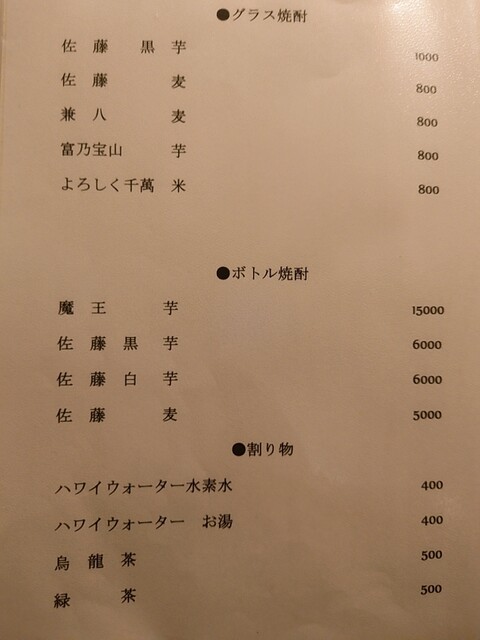 ●グラス焼酎
佐 藤 黒 芋 1000
佐 藤 麦 800
兼 八 麦 800
富乃宝山 芋 800
よろしく千萬 米 800
●ボトル焼酎
魔 王 芋 15000
佐 藤 黒 芋 6000
佐 藤 白 芋 6000
佐 藤 麦 5000
●割り物
ハワイウォーター水素水 400
ハワイウォーター お湯 400
烏 龍 茶 500
緑 茶 500